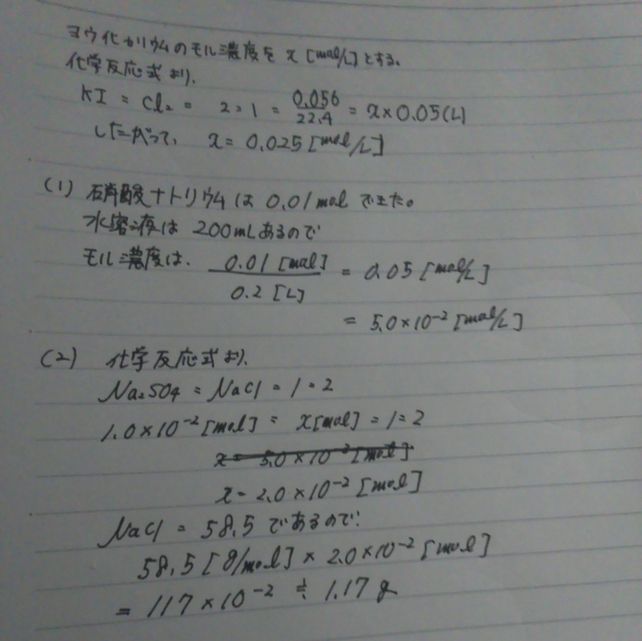 ヨウ化カリウムのモル濃度を x [mol/L] とする。
化学反応式より、
KI : Cl₂ = 2:1 = 0.056/22.4 = x × 0.05(L)
したがって、 x = 0.025 [mol/L]
(1) 硝酸ナトリウムは 0.01 mol できた。
水溶液は 200mLあるので
モル濃度は、 0.01 [mol]/0.2 [L] = 0.05 [mol/L]
= 5.0×10⁻² [mol/L]
(2) 化学反応式より、
Na₂SO₄ : NaCl = 1:2
1.0×10⁻² [mol] : x [mol] = 1:2
x = 5.0×10⁻³ [mol]
x = 2.0×10⁻² [mol]
NaCl = 58.5 であるので、
58.5 [g/mol] × 2.0×10⁻² [mol]
= 117×10⁻² ≒ 1.17 g